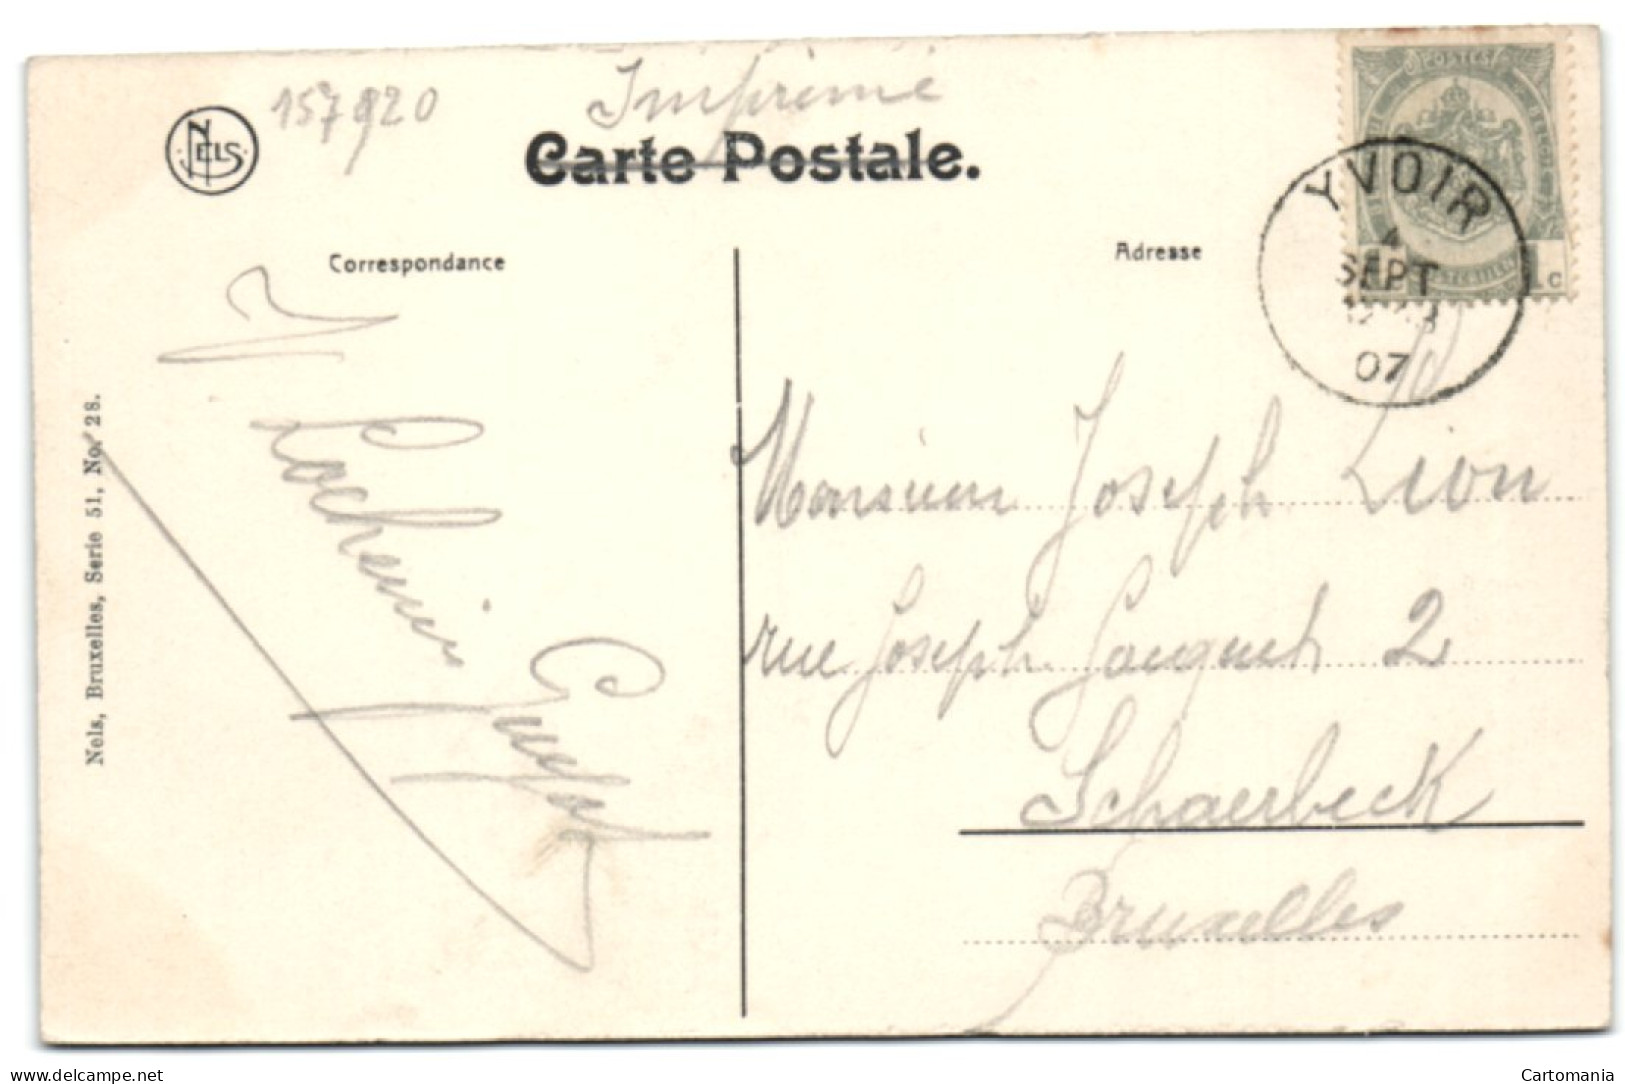 157920
Imprimé
NELS
Carte Postale.
POSTES
YVOIR
4
SEPT
07
1c
Correspondance
Adresse
Nels, Bruxelles, Serie 51, No. 28.
Monsieur Joseph Lion
rue Joseph 2
Schaerbeek
Bruxelles
delcampe.net
Cartomania